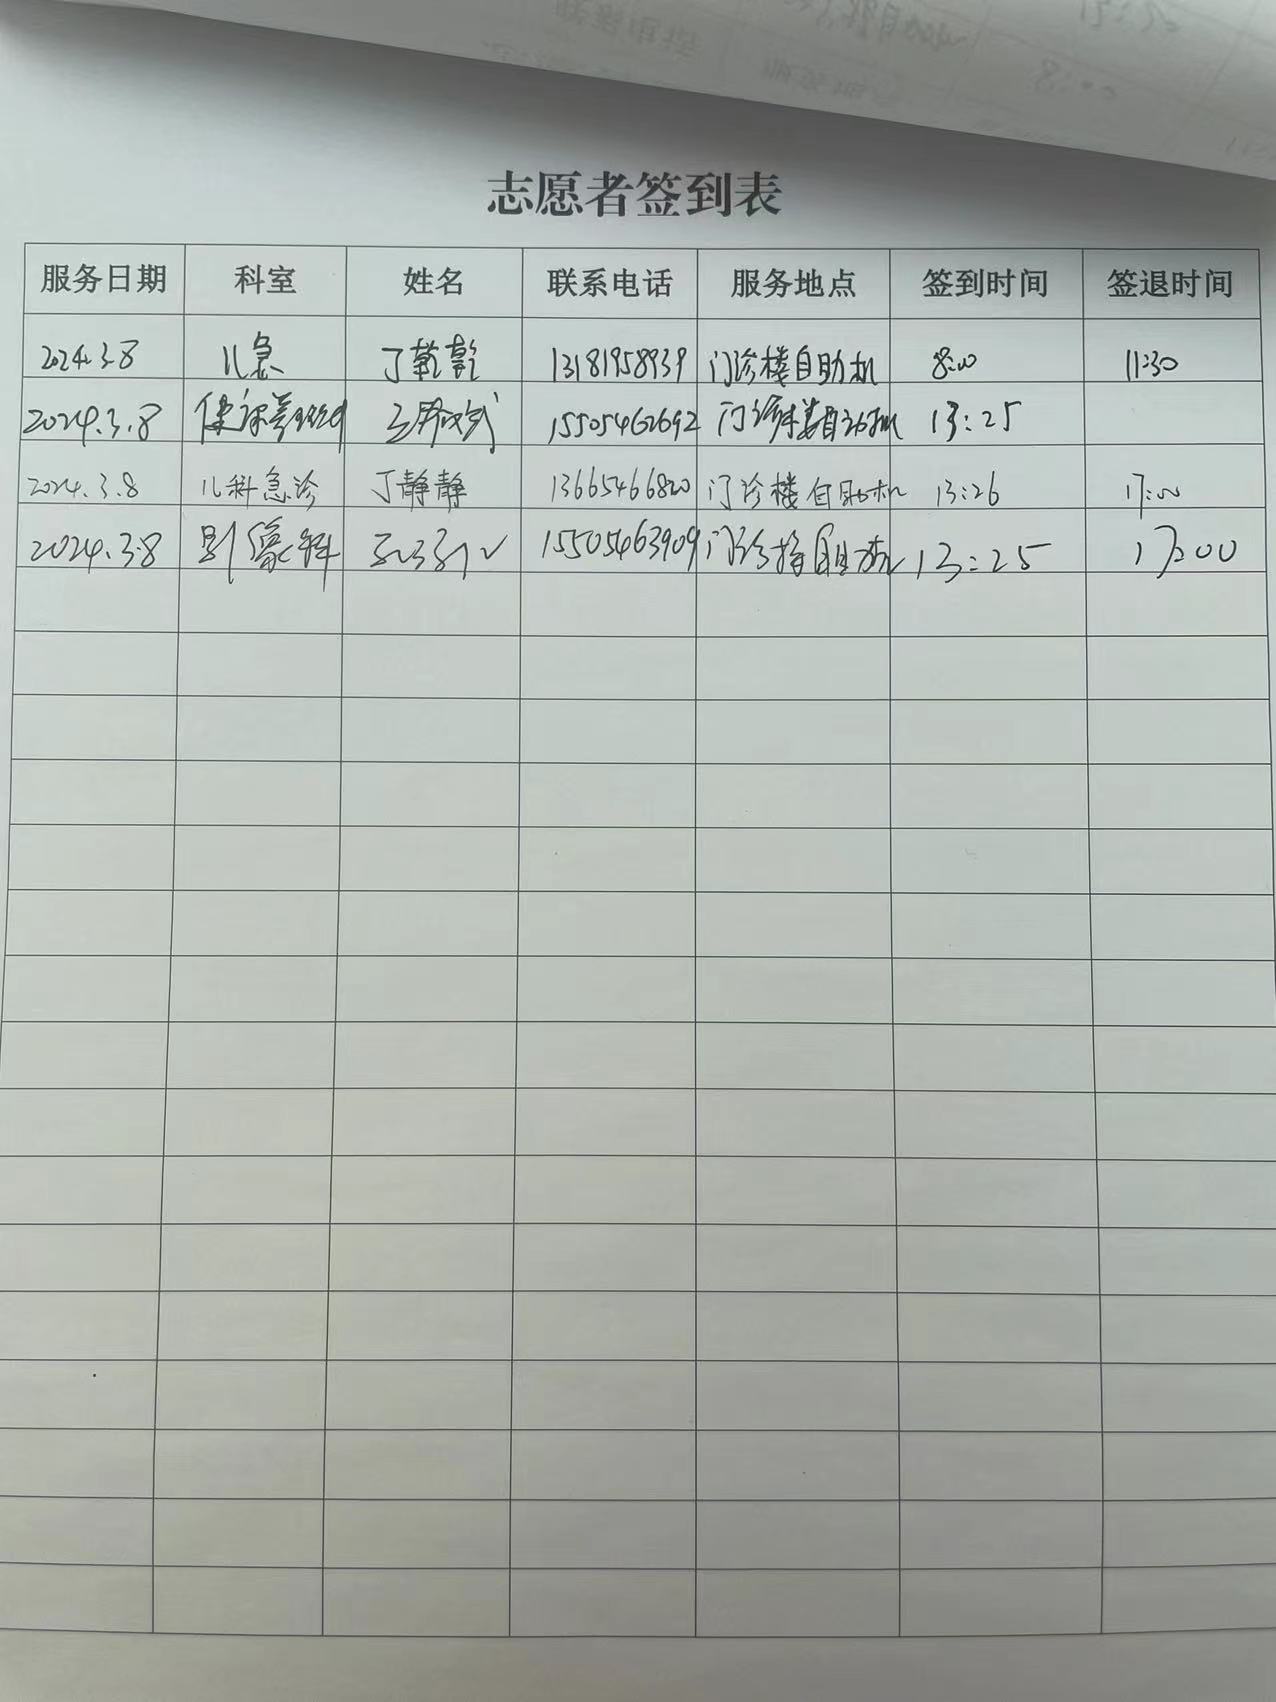 志愿者签到表
服务日期 科室 姓名 联系电话 服务地点 签到时间 签退时间
2024.3.8 儿急 丁乾乾 13181958939 门诊楼自助机 8:00 11:30
2024.3.8 15505462692 门诊楼自助机 13:25
2024.3.8 儿科急诊 丁静静 13665466820 门诊楼自助机 13:26 17:00
2024.3.8 影像科 15505463909 门诊楼自助机 13:25 17:00